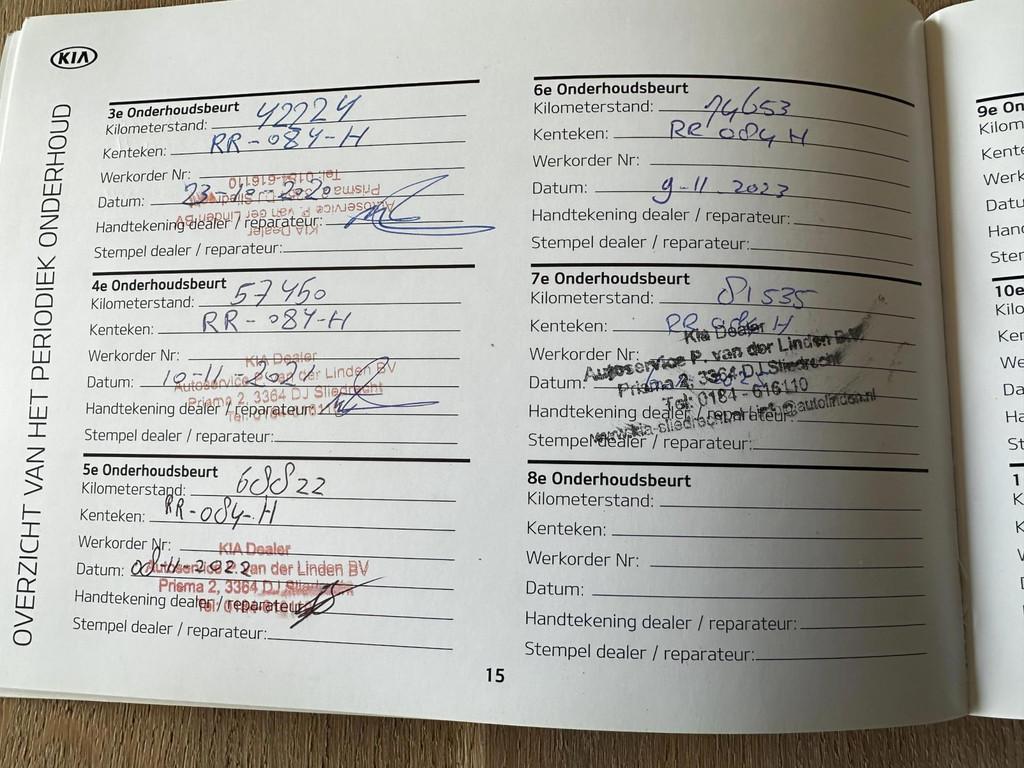 KIA
OVERZICHT VAN HET PERIODIEK ONDERHOUD
3e Onderhoudsbeurt
Kilometerstand: 42224
Kenteken: RR-084-H
Werkorder Nr:
Datum: 23-10-2020
Handtekening dealer / reparateur:
Stempel dealer / reparateur:
KIA Dealer
Autoservice P. van der Linden BV
Prisma 2, 3364 DJ Sliedrecht
Tel: 0184-616110
4e Onderhoudsbeurt
Kilometerstand: 57450
Kenteken: RR-084-H
Werkorder Nr:
Datum: 10-11-2021
Handtekening dealer / reparateur:
Stempel dealer / reparateur:
KIA Dealer
Autoservice P. van der Linden BV
Prisma 2, 3364 DJ Sliedrecht
5e Onderhoudsbeurt
Kilometerstand: 68822
Kenteken: RR-084-H
Werkorder Nr:
Datum: 08-11-2022
Handtekening dealer / reparateur:
Stempel dealer / reparateur:
KIA Dealer
Autoservice P. van der Linden BV
Prisma 2, 3364 DJ Sliedrecht
6e Onderhoudsbeurt
Kilometerstand: 74653
Kenteken: RR 084 H
Werkorder Nr:
Datum: 9-11-2023
Handtekening dealer / reparateur:
Stempel dealer / reparateur:
7e Onderhoudsbeurt
Kilometerstand: 81535
Kenteken: RR 084 H
Werkorder Nr:
Datum:
Handtekening dealer / reparateur:
Stempel dealer / reparateur:
Kia Dealer
Autoservice P. van der Linden B.V.
Prisma 2, 3364 DJ Sliedrecht
Tel: 0184 - 616110
8e Onderhoudsbeurt
Kilometerstand:
Kenteken:
Werkorder Nr:
Datum:
Handtekening dealer / reparateur:
Stempel dealer / reparateur:
15
9e On
Kilom
Kente
Werk
Datu
Hand
Ster
10e
Kilo
Ker
We
Da
Ha
St
1
K
K